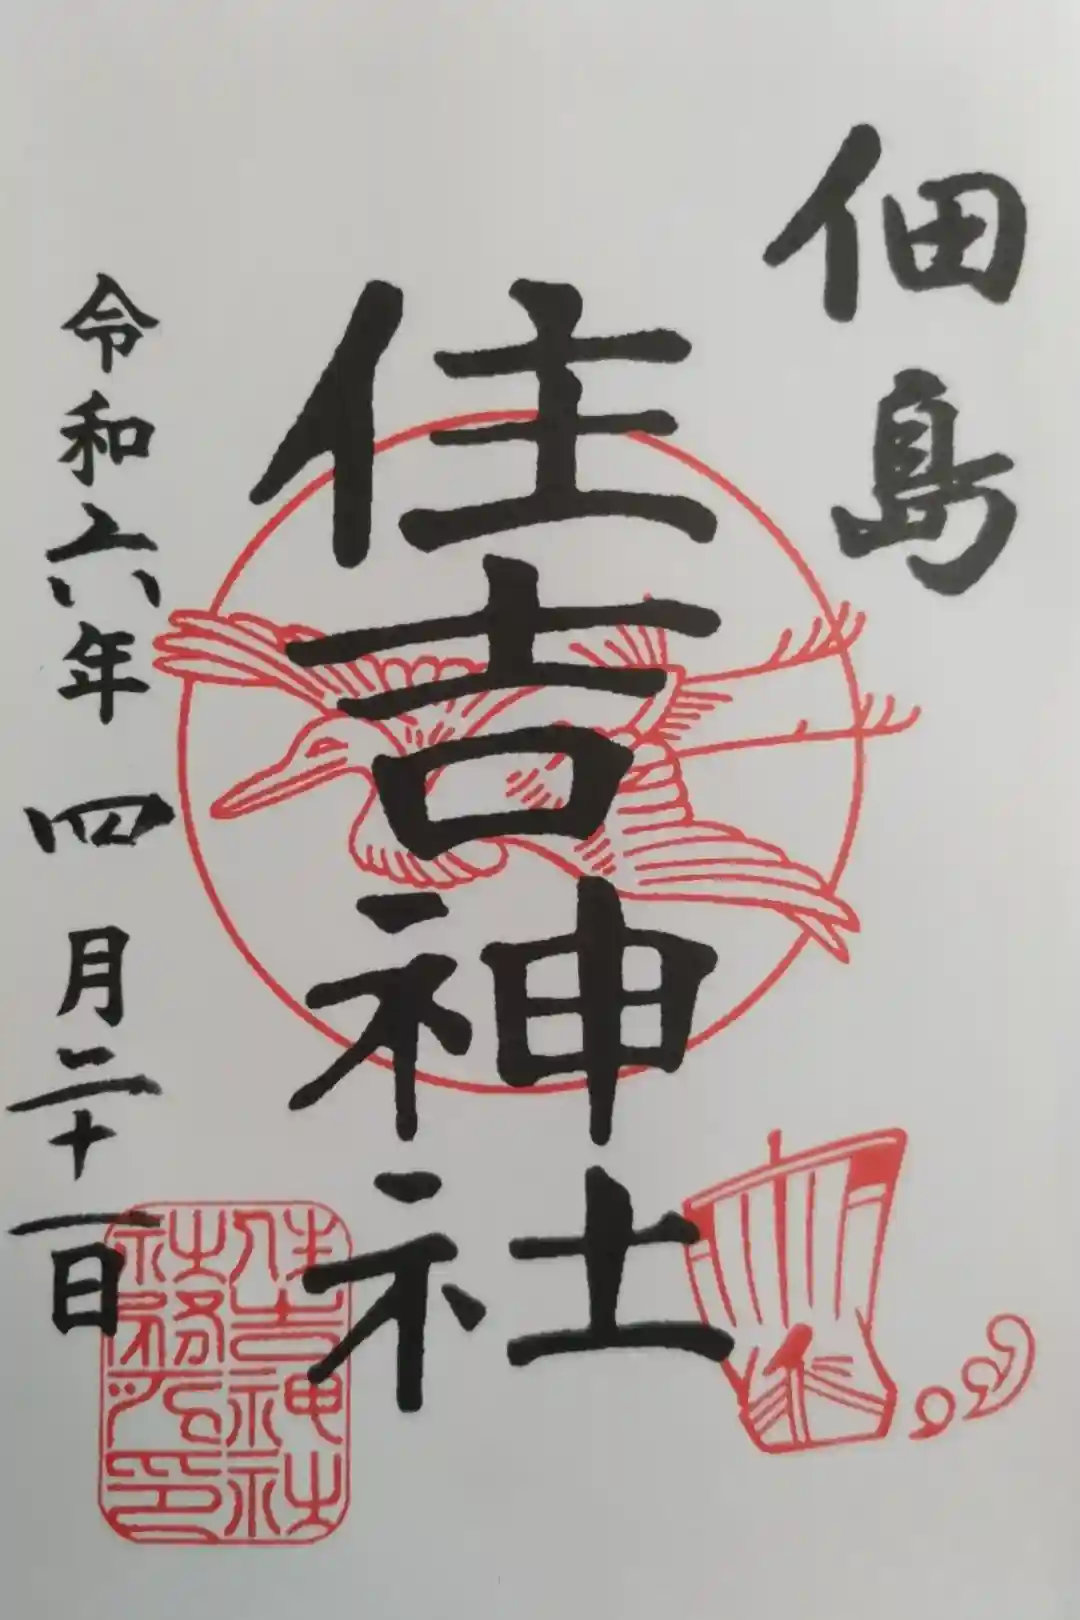 佃島
住吉神社
令和六年四月二十一日
住吉神社
社務所印